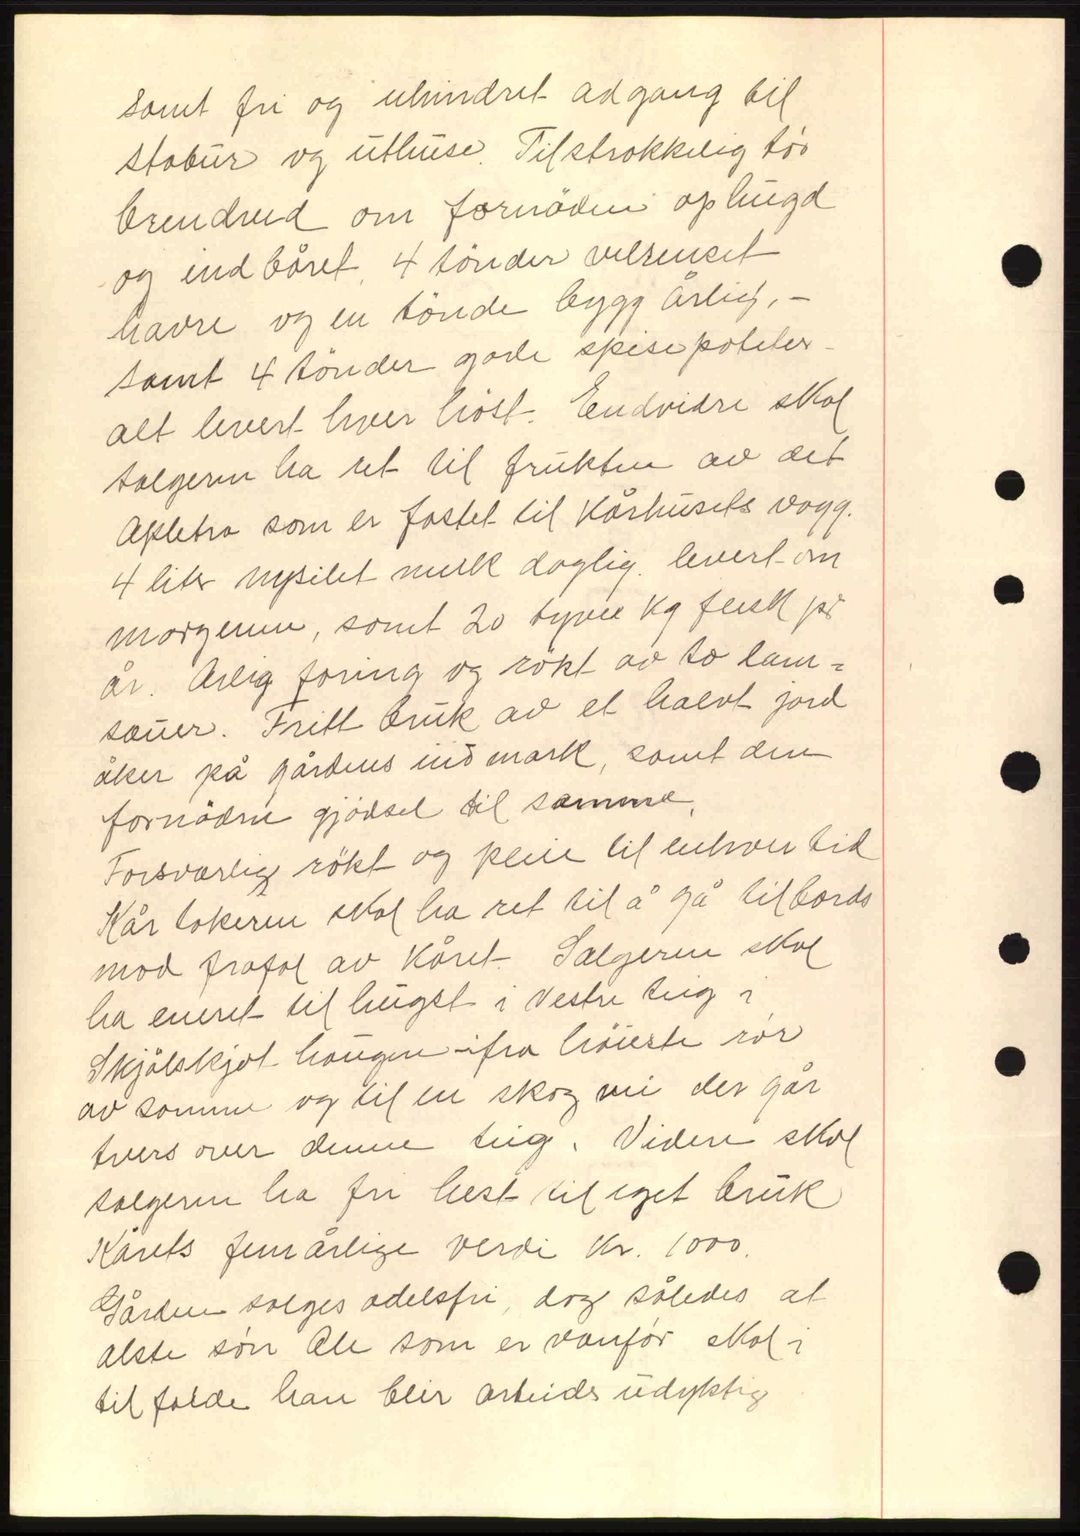 samt fri og uhindret adgang til
stabur og uthuse. Tilstrækkelig tør
brendeved om fornöden ophugd
og indbåret, 4 tönder velrenset
havre og en tönde bygg årlig, -
samt 4 tönder gode spisepoteter -
alt levert hver höst. Endvidre skal
sælgeren ha ret til frukten av det
Apletræ som er fæstet til Kårhusets vægg.
4 liter nysilet melk daglig levert om
morgenen, samt 20 tyve kg flesk pr
år. Årlig foring og rökt av to lam=
sauer. Fritt bruk av et halvt jord
åker på gårdens indmark, samt den
fornödne gjödsel til samme.
Forsvarlig rökt og pleie til enhver tid
Kårtakeren skal ha ret til å gå tilbords
mod frafal av Kåret. Sælgeren skal
ha eneret til hugst i Vestre teig i
Skjölskjøt haugen ifra höieste rör
av samme og til en skogvei der går
tvers over denne teig. Videre skal
sælgeren ha fri hest til eget bruk
Kårets femårlige verdi Kr. 1000.
Gården sælges odelsfri, dog således at
ælste sön Ole som er vanför skal i
tilfælde han blir arbeidsudyktig